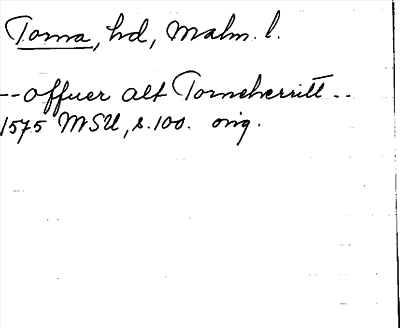 Torna, hd, Malm. l.
-- offuer alt Torneherritt --
1575 MSU, s. 100. orig.